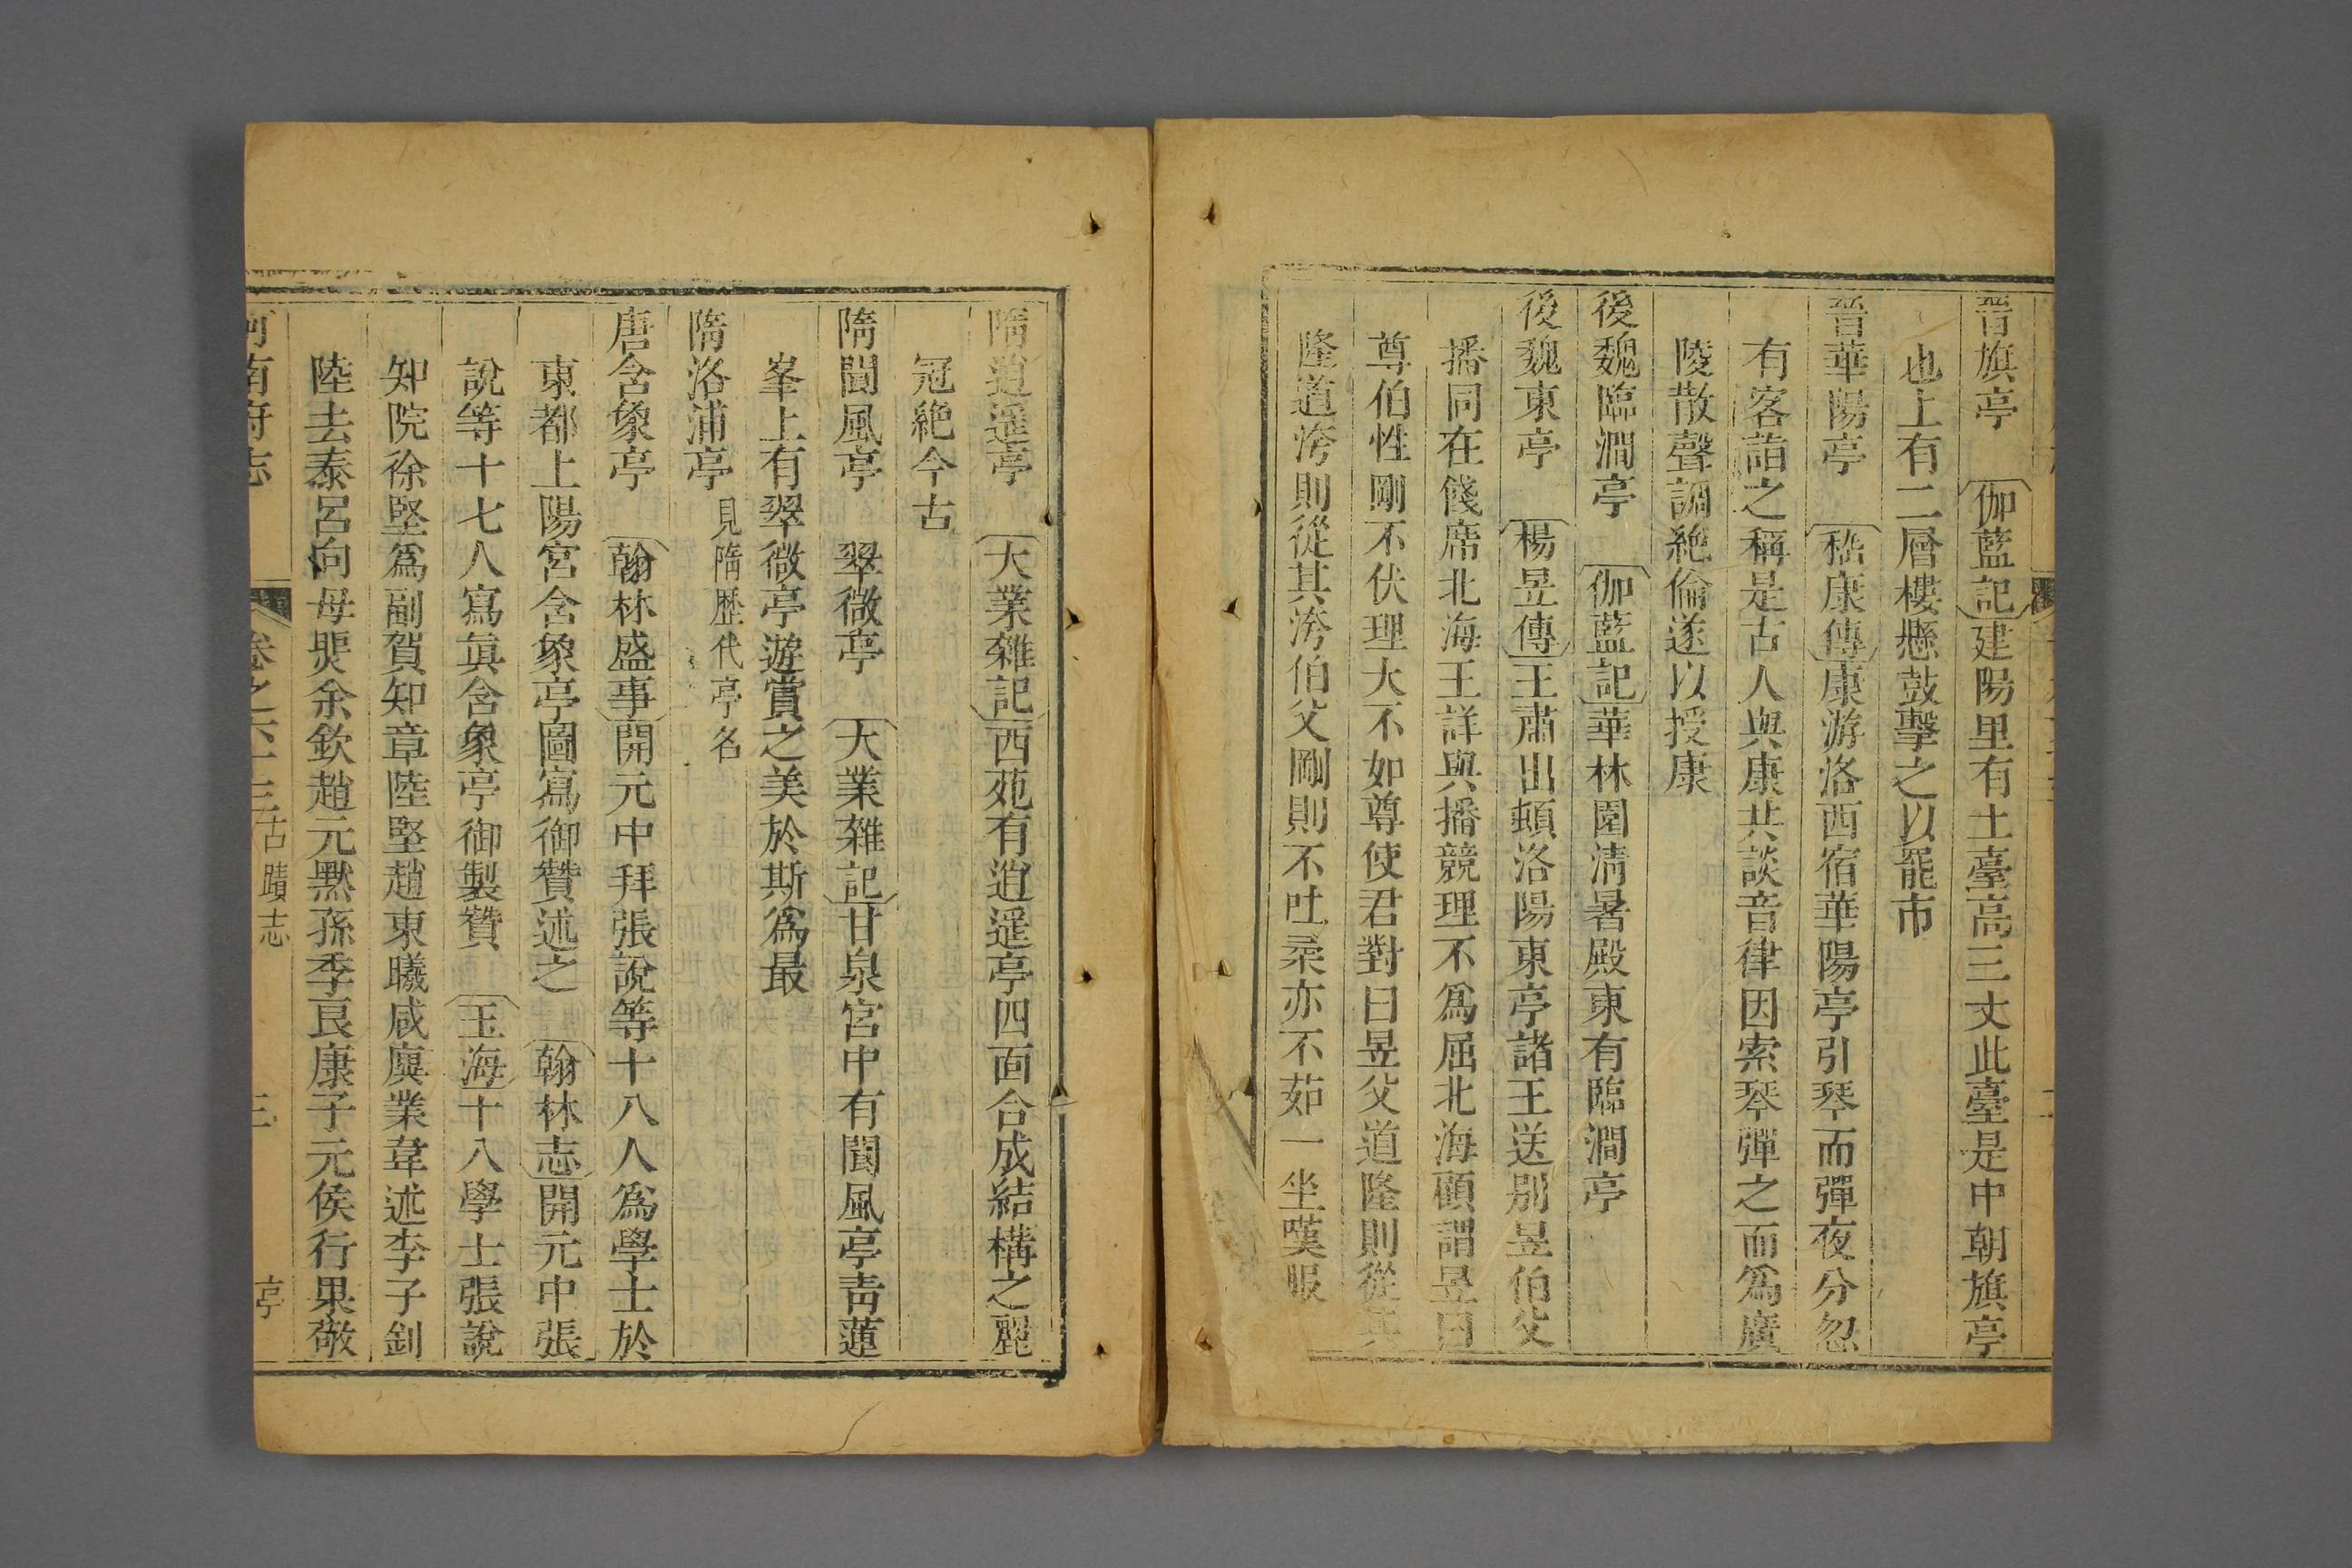 晉旗亭　伽藍記建陽里有土臺高三丈此臺是中朝旗亭
也上有二層樓懸鼓擊之以罷市
晉華陽亭　嵇康傳康游洛西宿華陽亭引琴而彈夜分忽
有客詣之稱是古人與康共談音律因索琴彈之而爲廣
陵散聲調絶倫遂以授康
後魏臨澗亭　伽藍記華林園淸暑殿東有臨澗亭
後魏東亭　楊昱傳王肅出頓洛陽東亭諸王送別昱伯父
播同在餞席北海王詳與播競理不爲屈北海顧謂昱曰
尊伯性剛不伏理大不如尊使君對曰昱父道隆則從其
隆道洿則從其洿伯父剛則不吐柔亦不茹一坐嘆服
隋逍遥亭　大業雜記西苑有逍遥亭四面合成結構之麗
冠絶今古
隋閬風亭　翠微亭　大業雜記甘泉宮中有閬風亭靑蓮
峯上有翠微亭遊賞之美於斯爲最
隋洛浦亭 見隋歷代亭名
唐含象亭　翰林盛事開元中拜張說等十八人爲學士於
東都上陽宮含象亭圖寫御贊述之　翰林志開元中張
說等十七八寫眞含象亭御製贊　玉海十八學士張說
知院徐堅爲副賀知章陸堅趙東曦咸廙業韋述李子釗
陸去泰呂向毋煚余欽趙元默孫季良康子元侯行果敬
河南府志　卷之六十三古蹟志　三　亭